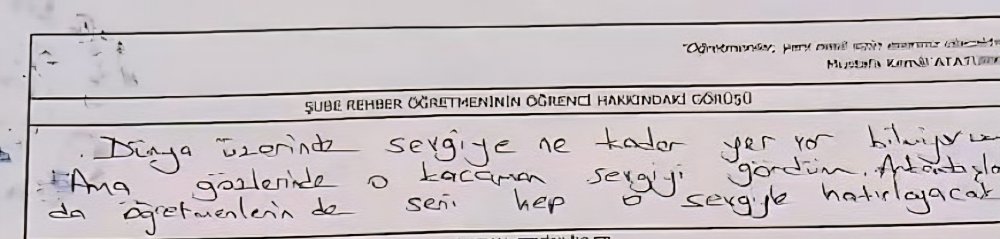 "Öğretmenler, yeni nesil sizin
Mustafa Kemal ATATÜRK
ŞUBE REHBER ÖĞRETMENİNİN ÖĞRENCİ HAKKINDAKİ GÖRÜŞÜ
Dünya üzerinde sevgiye ne kadar yer var bilmiyor
Ama gözlerinde o kocaman sevgiyi gördüm.
da öğretmenlerin de seni hep o sevgiyle hatırlayacak